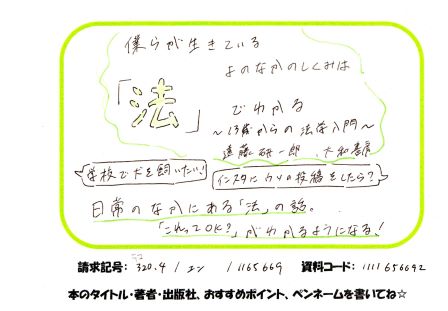 僕らが生きている
よのなかのしくみは
「法」
でわかる
～13歳からの法学入門～
遠藤研一郎 大和書房
学校で犬を飼いたい!
インスタにカメの投稿をしたら?
日常のなかにある「法」の話。
「これってOK?」がわかるようになる!
請求記号: 320.4 / エン / 1165669 資料コード: 1111656692
本のタイトル・著者・出版社、おすすめポイント、ペンネームを書いてね☆